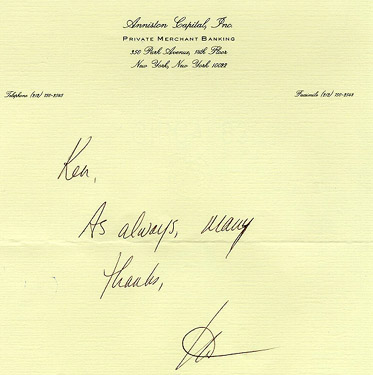 Anniston Capital, Inc.
PRIVATE MERCHANT BANKING
350 Park Avenue, 14th Floor
New York, New York 10022
Telephone (212) Facsimile (212)
Ken,
As always, many
thanks,